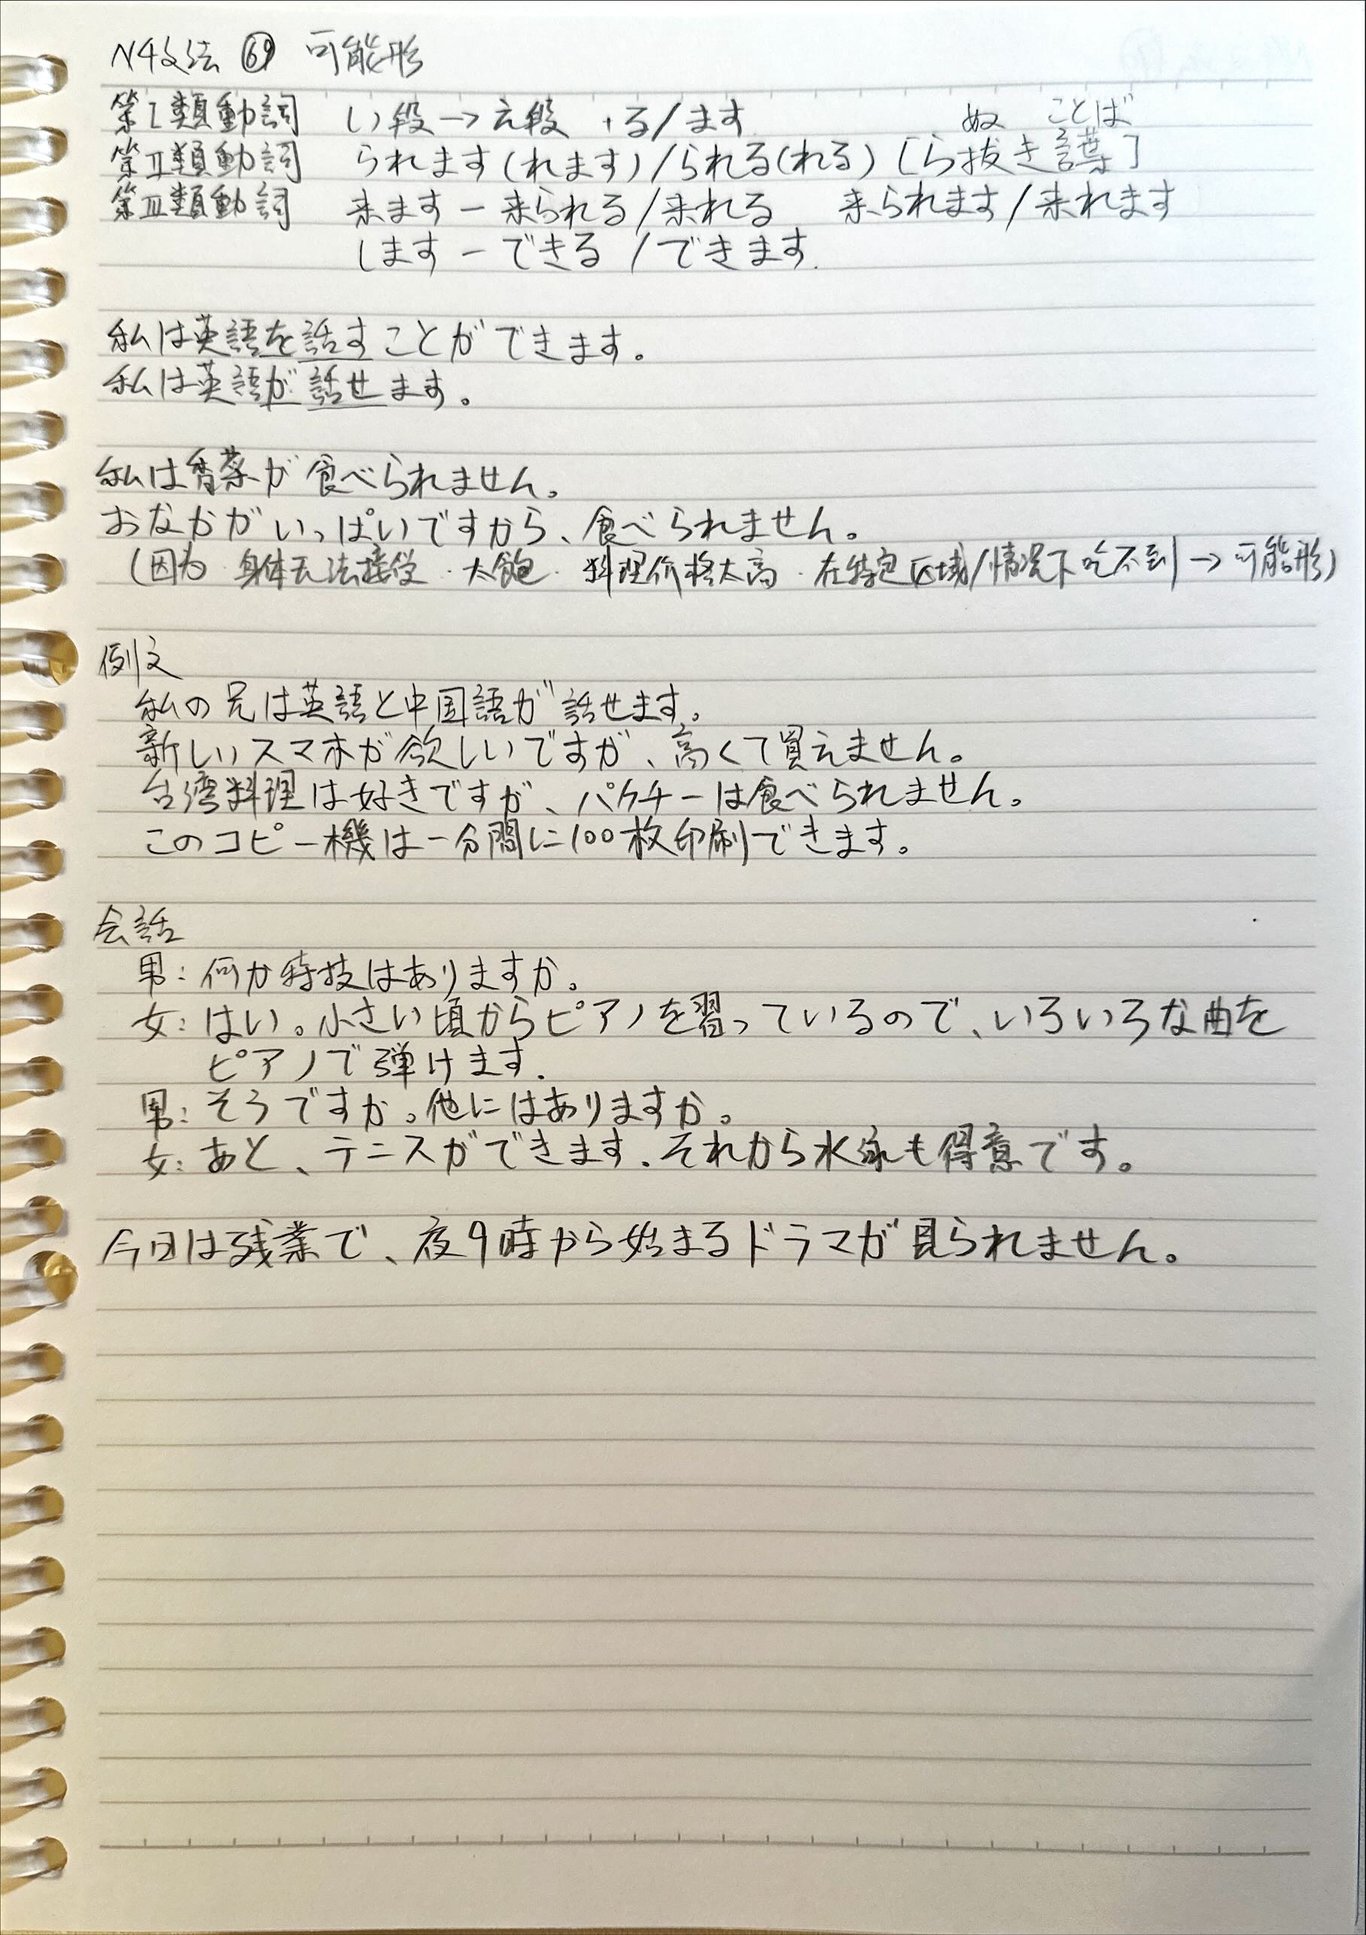 N4文法 69 可能形
第Ⅰ類動詞 い段→え段 +る/ます
ぬ ことば
第Ⅱ類動詞 られます(れます)/られる(れる) [ら抜き言葉]
第Ⅲ類動詞 来ます－来られる/来れる 来られます/来れます
します－できる/できます.
私は英語を話すことができます。
私は英語が話せます。
私は香菜が食べられません。
おなかがいっぱいですから、食べられません。
(因为·身体无法接受·太飽·料理价格太高·在特定区域/情况下吃不到→可能形)
例文
私の兄は英語と中国語が話せます。
新しいスマホが欲しいですが、高くて買えません。
台湾料理は好きですが、パクチーは食べられません。
このコピー機は一分間に100枚印刷できます。
会話
男:何か特技はありますか。
女:はい。小さい頃からピアノを習っているので、いろいろな曲を
ピアノで弾けます.
男:そうですか。他にはありますか。
女:あと、テニスができます.それから水泳も得意です。
今日は残業で、夜9時から始まるドラマが見られません。